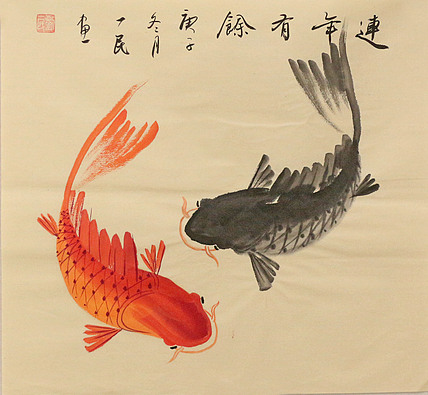 連年有餘
庚子
冬月
丁民
画